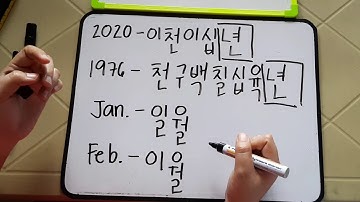 2020 - 이천이십년
1976 - 천구백칠십육년
Jan. - 일월
Feb. - 이월